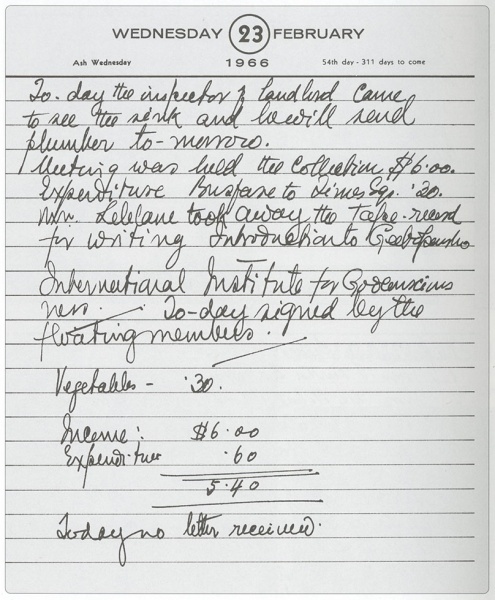 WEDNESDAY 23 FEBRUARY
Ash Wednesday 1966 54th day - 311 days to come
To-day the inspector & landlord came
to see the sink and he will send
plumber to-morrow.
Meeting was held the collection $6.00.
Expenditure Busfare to Times Sqr. .20.
Mr. took away the Tape-record
for writing Introduction to
International Institute for God conscious
ness. To-day signed by the
floating members.
Vegetables - .30.
Income: $6.00
Expenditure .60
5.40
Today no letter received.